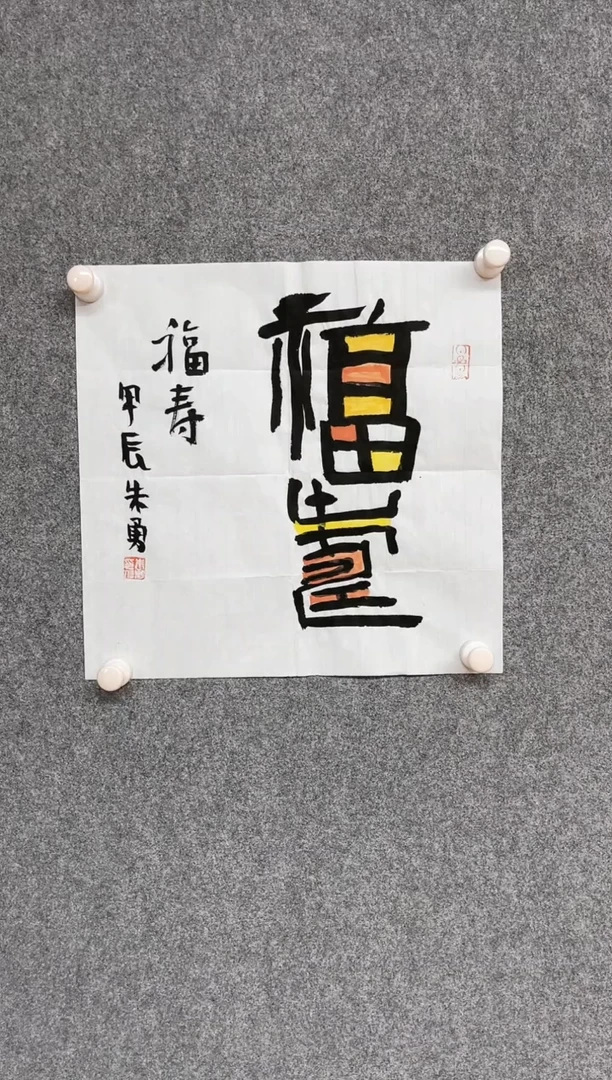 福壽
福寿
甲辰朱勇